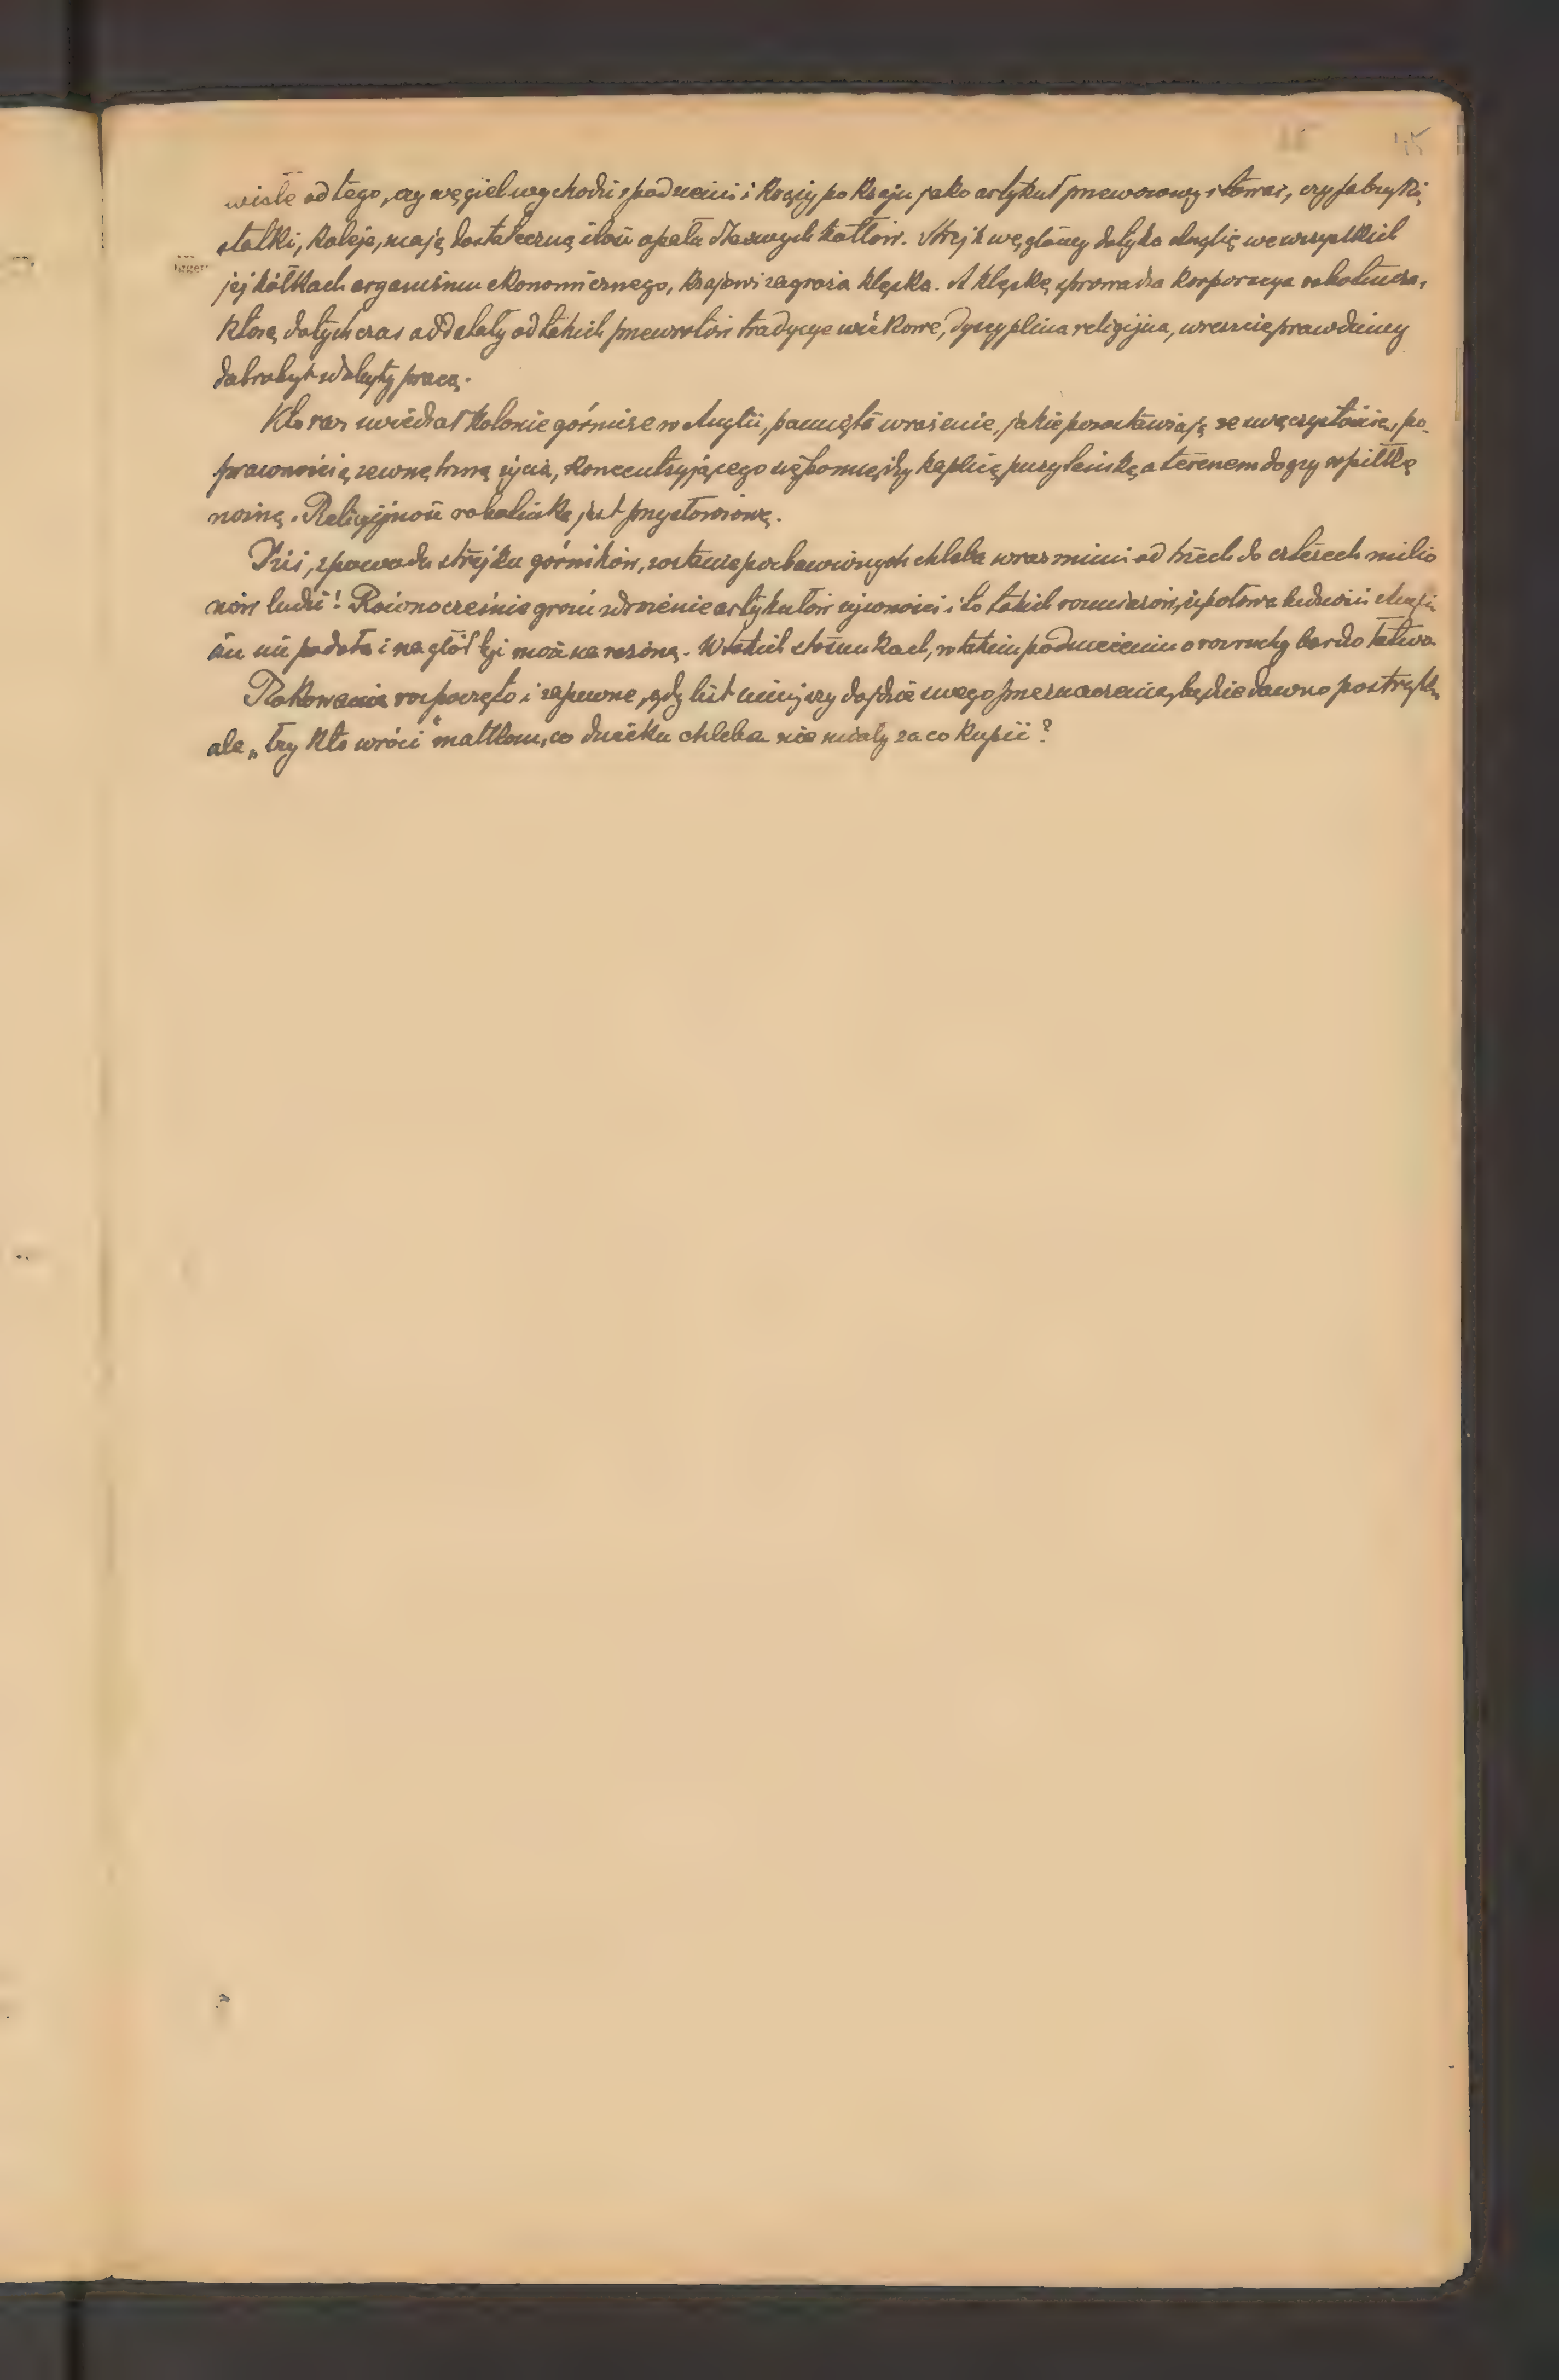 45
wiele od tego, czy węgiel wychodzi z pod ziemi i krąży po kraju jako artykuł przewozowy i towar, czy fabryki,
statki, koleje, mają dostateczną ilość opału dla swych kotłów. Strejk węglowy dotyka Anglię we wszystkich
jej kółkach organizmu ekonomicznego, krajowi zagraża klęska. A klęskę sprowadza korporacya robotnicza,
którą dotychczas oddalały od takich przewrotów tradycye wiekowe, dyscyplina religijna, wreszcie prawdziwy
dobrobyt zdobyty pracą.
Kto raz zwiedzał kolonie górnicze w Anglii, pamięta wrażenie, jakie pozostawiają ze swą czystością, po-
prawnością zewnętrzną życia, koncentryjącego się pomiędzy kaplicą purytańską, a terenem do gry w piłkę
nożną. Religijność robotnika jest przysłowiową.
Dziś, z powodu strejku górników, zostaje pozbawionych chleba wraz z nimi od trzech do czterech milio
nów ludzi! Równocześnie grozi zdrożenie artykułów żywności i to takich rozmiarów, iż połowa ludności
na głód być może narażoną. W takich stosunkach, w takiem podnieceniu o rozruchy bardzo łatwo.
Rokowania rozpoczęto i zapewne, gdy list niniejszy dojdzie swego przeznaczenia, będzie dawno po strejku,
ale „łzy kto wróci" matkom, co dziecku chleba nie miały za co kupić?